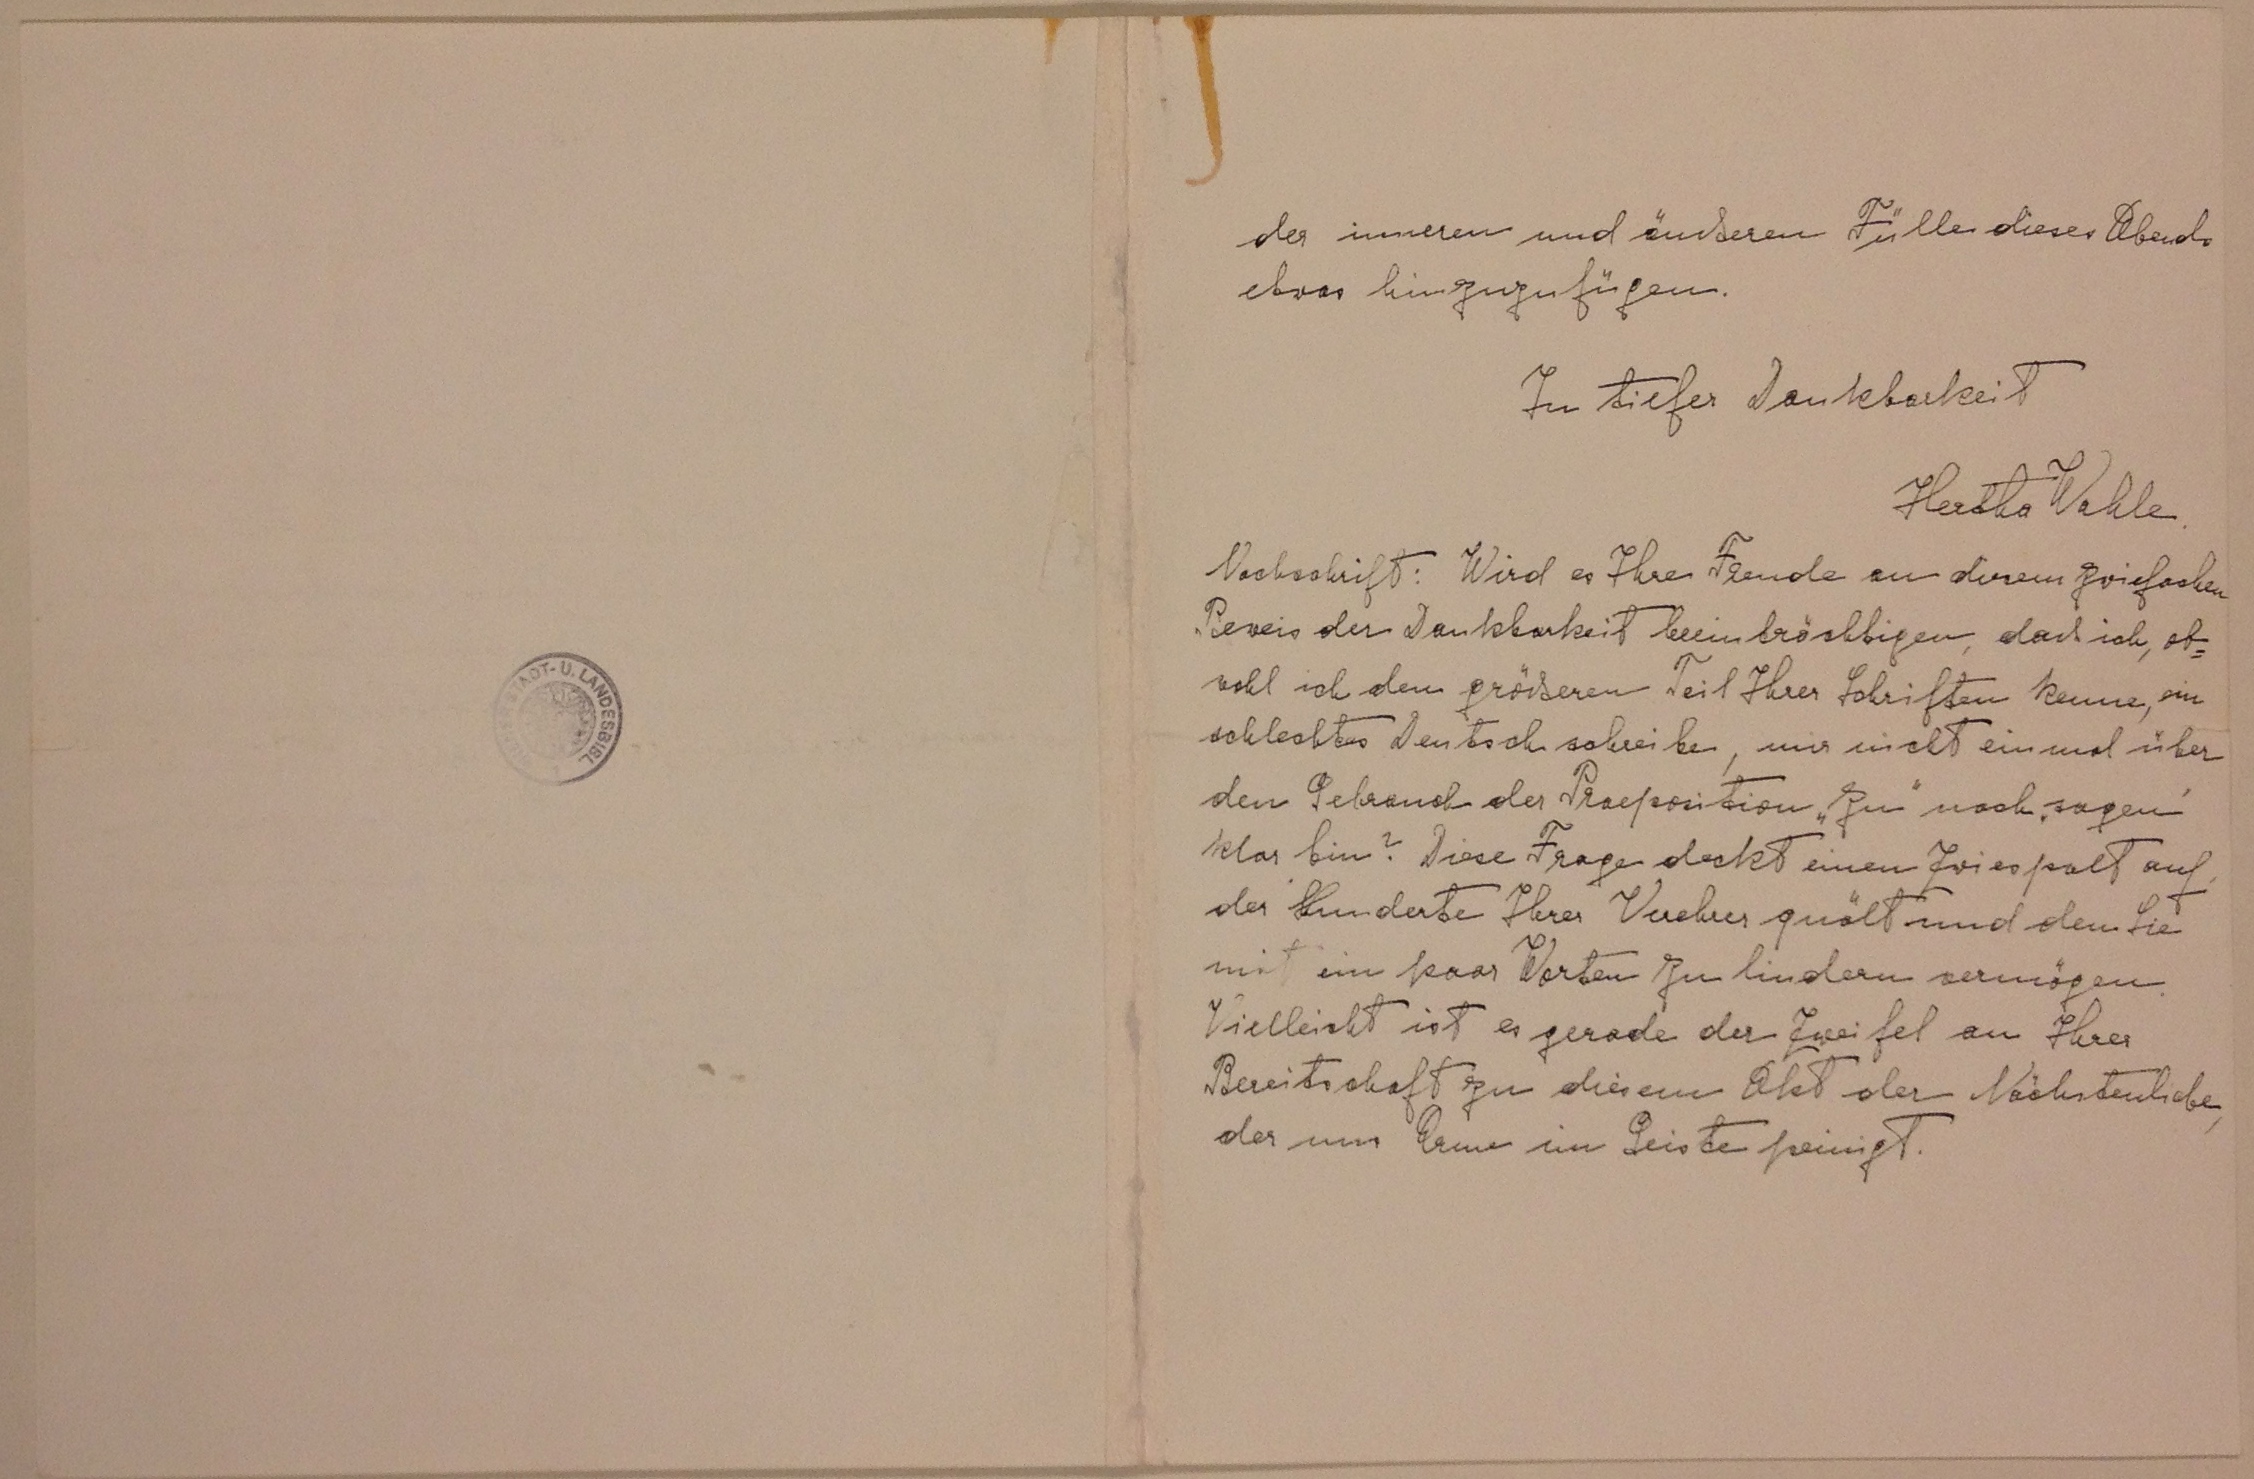 STADT- U. LANDESBIBL
der inneren und äußeren Fülle dieses Abends
etwas hinzuzufügen.
In tiefer Dankbarkeit
Hertha Wahle.
Nachschrift: Wird es Ihre Freude an diesem zwiefachen
Beweis der Dankbarkeit beeinträchtigen, daß ich, ob=
wohl ich den größeren Teil Ihrer Schriften kenne, ein
schlechtes Deutsch schreibe, mir nicht einmal über
den Gebrauch der Praeposition „zu“ nach „sagen“
klar bin? Diese Frage deckt einen Zwiespalt auf,
der Hunderte Ihrer Verehrer quält und den Sie
mit ein paar Worten zu lindern vermögen.
Vielleicht ist es gerade der Zweifel an Ihrer
Bereitschaft zu diesem Akt der Nächstenliebe,
der uns Arme im Geiste peinigt.